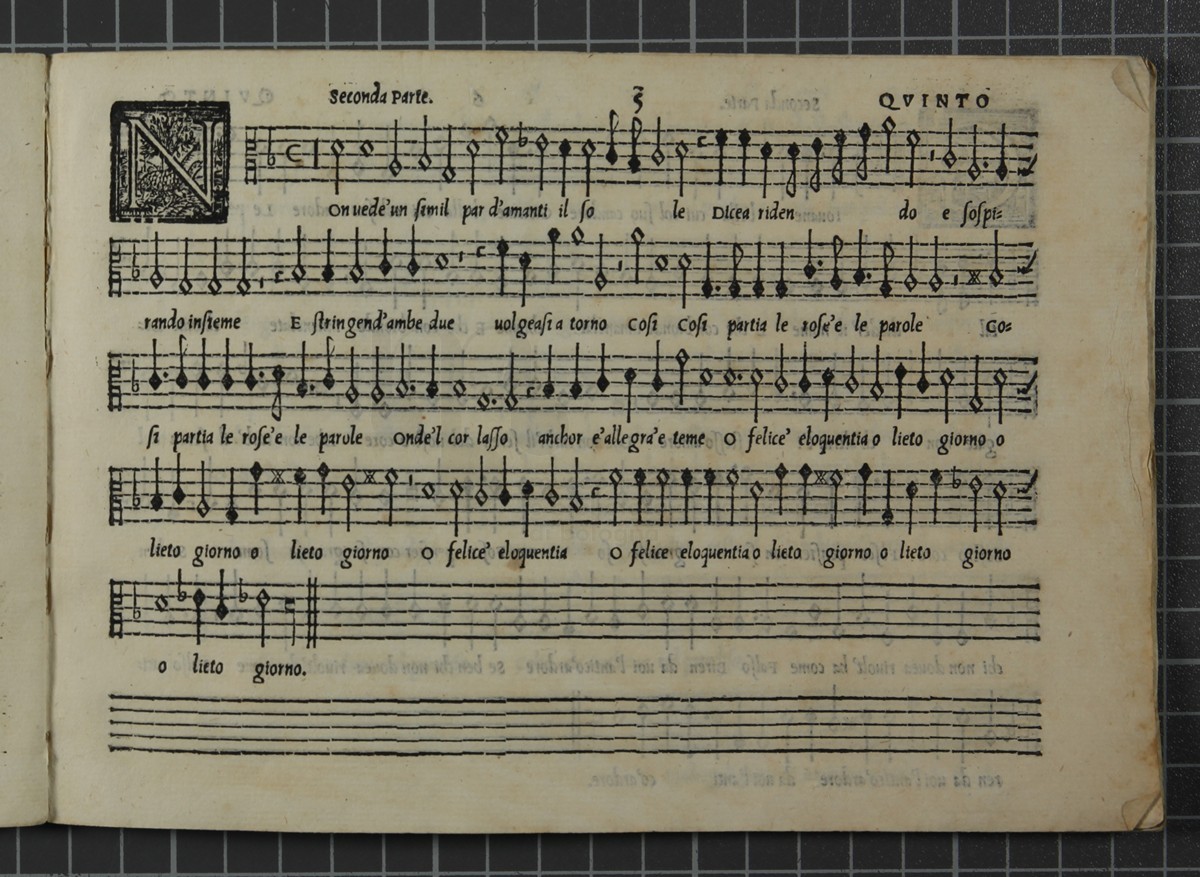 Seconda Parte. 5 QVINTO
NOn uede'un simil par d'amanti il so le Dicea riden do e sospi=
rando insieme E stringend'ambe due uolgeasi a torno Cosi Cosi partia le rose'e le parole Co=
si partia le rose'e le parole Onde'l cor lasso anchor e'allegra'e teme O felice' eloquentia o lieto giorno o
lieto giorno o lieto giorno O felice' eloquentia O felice eloquentia o lieto giorno o lieto giorno
o lieto giorno.